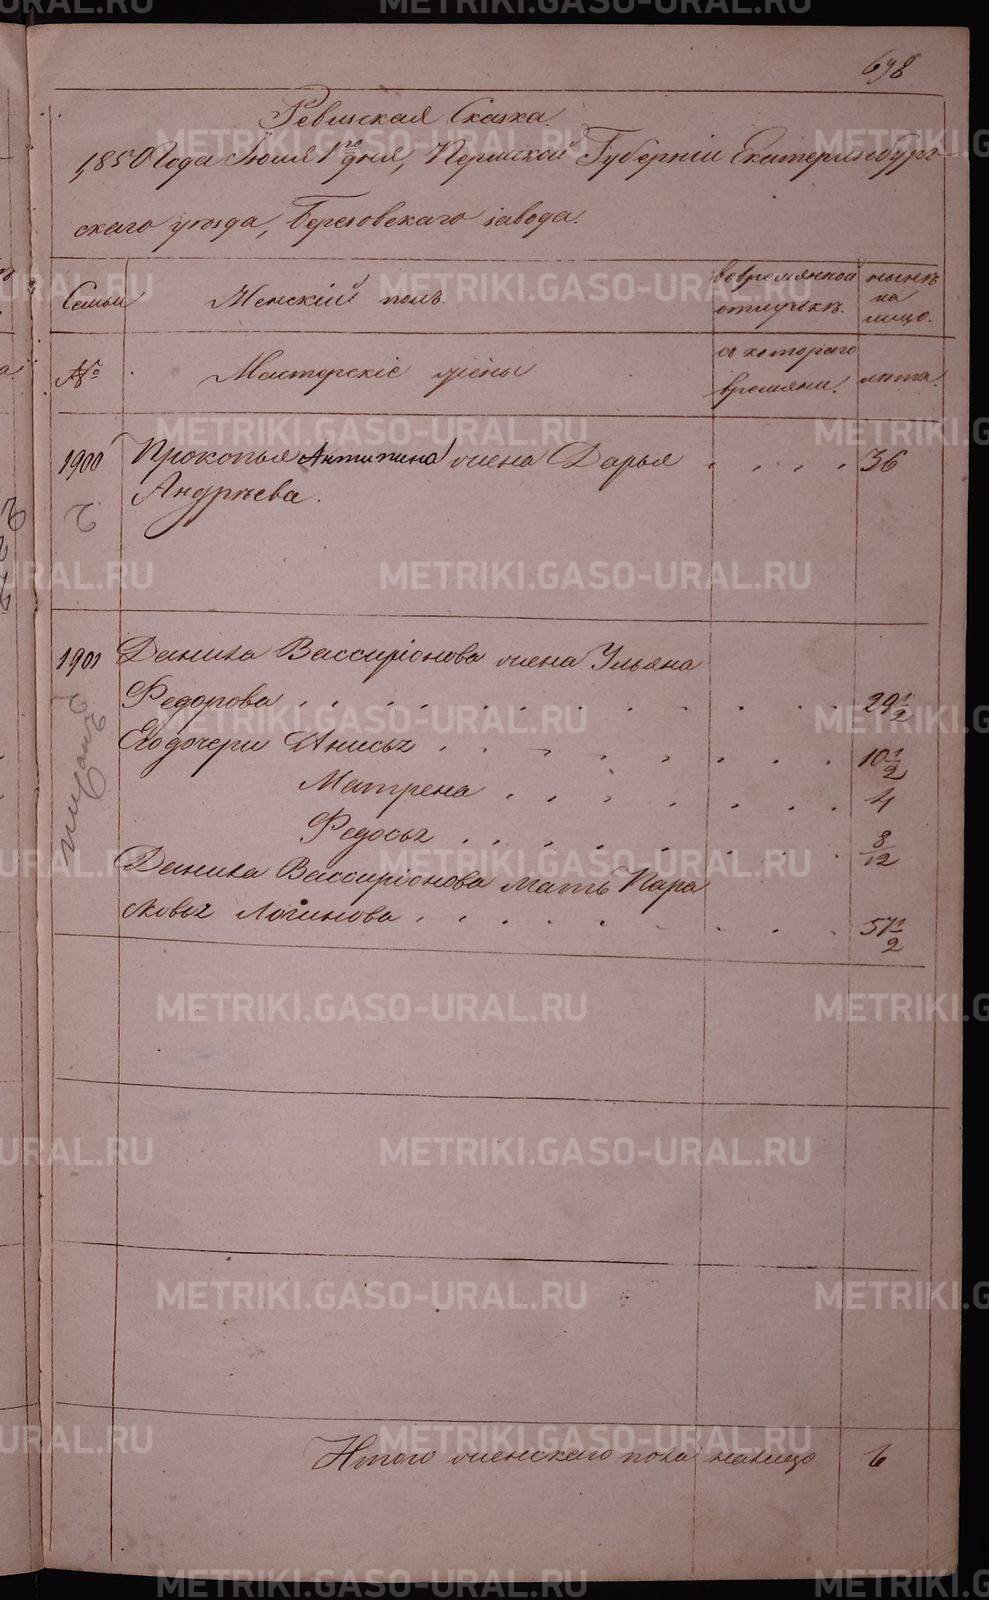 698
Ревизская Сказка.
1850 Года Июля 1го дня, Пермской Губернiи Екатеринбург-
скаго уезда, Березовскаго завода.
Семьи Женскiй полъ. во временной отлучкѣ. нынѣ на лицо.
№ Мастерскiе жены съ котораго времяни. лѣта.
1900 Прокопья Антипина жена Дарья . . . . 36
Андрѣева.
1901 Данила Виссарiонова жена Ульяна
Федорова . . . . . . . . . . . 29 1/2
Его дочери Анисья . . . . . . . . 10 1/2
Матрена . . . . . . . . 4
Федосья . . . . . . . . 8/12
Данила Виссарiонова мать Пара
сковья Логинова . . . . . . . . 57 1/2
Итого женскаго пола налицо 6
METRIKI.GASO-URAL.RU